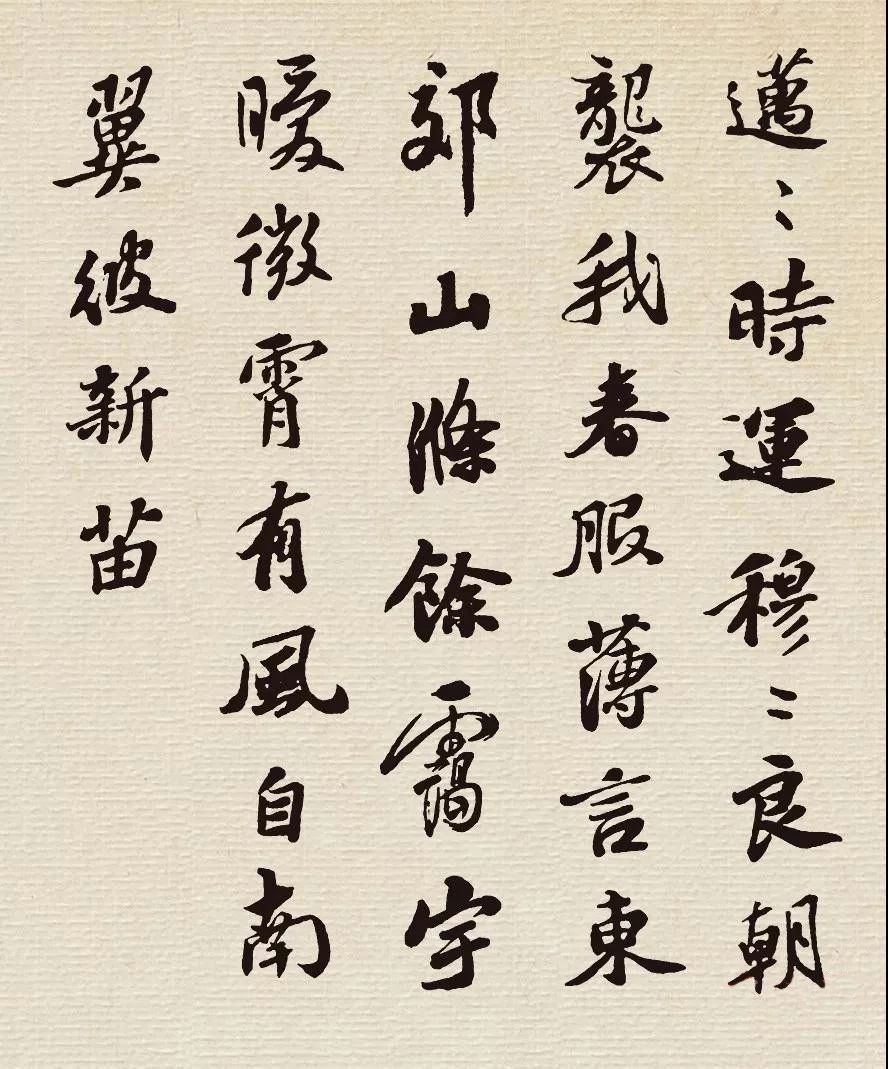 邁〻時運穆〻良朝
襲我春服薄言東
郊山滌餘靄宇
曖微霄有風自南
翼彼新苗